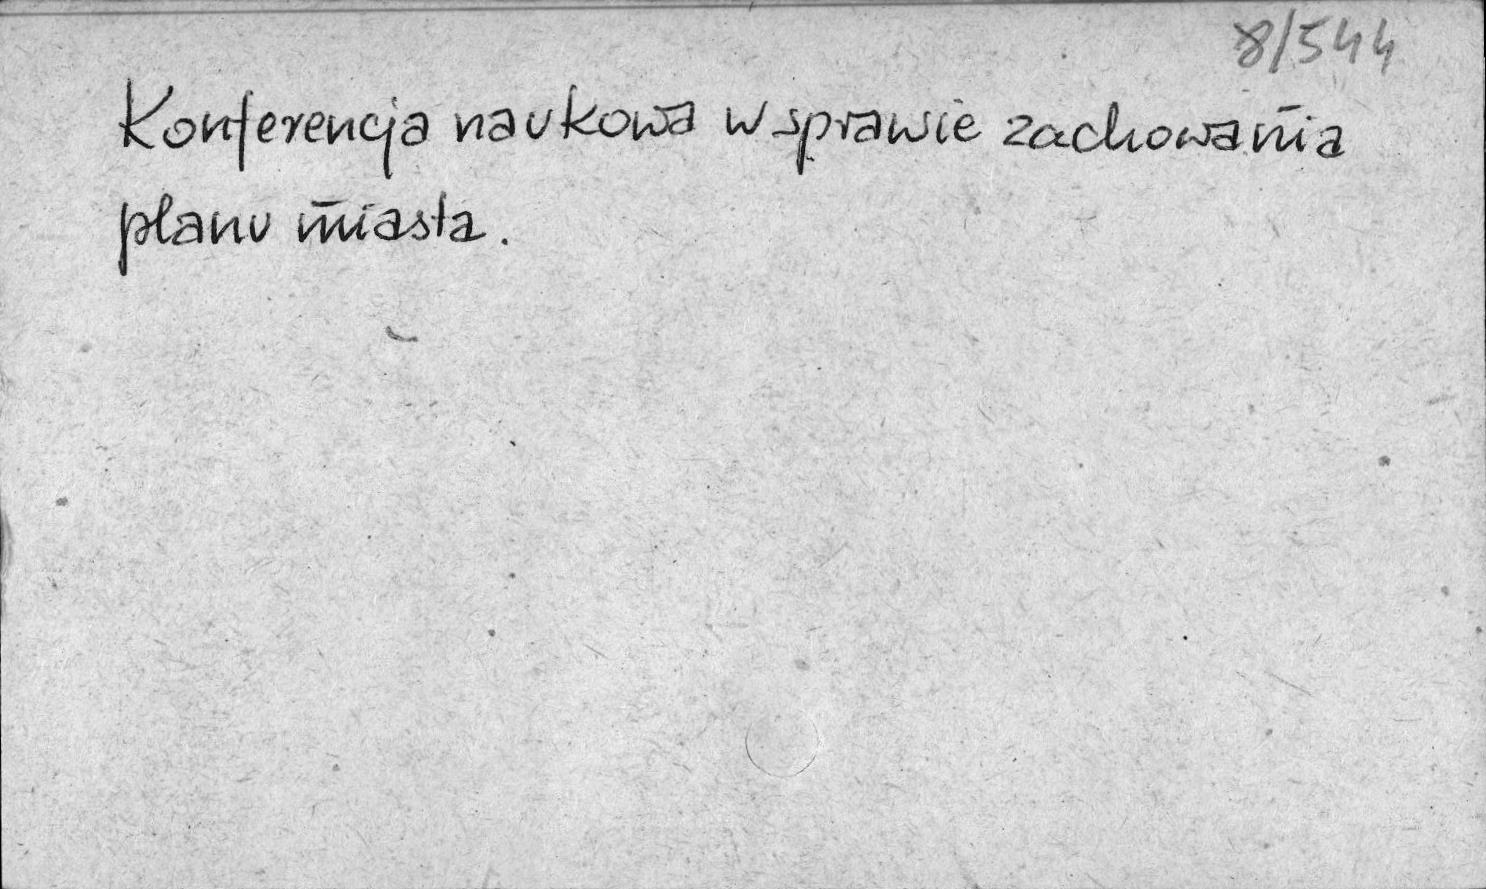 8/544
Konferencja naukowa w sprawie zachowania
planu miasta.